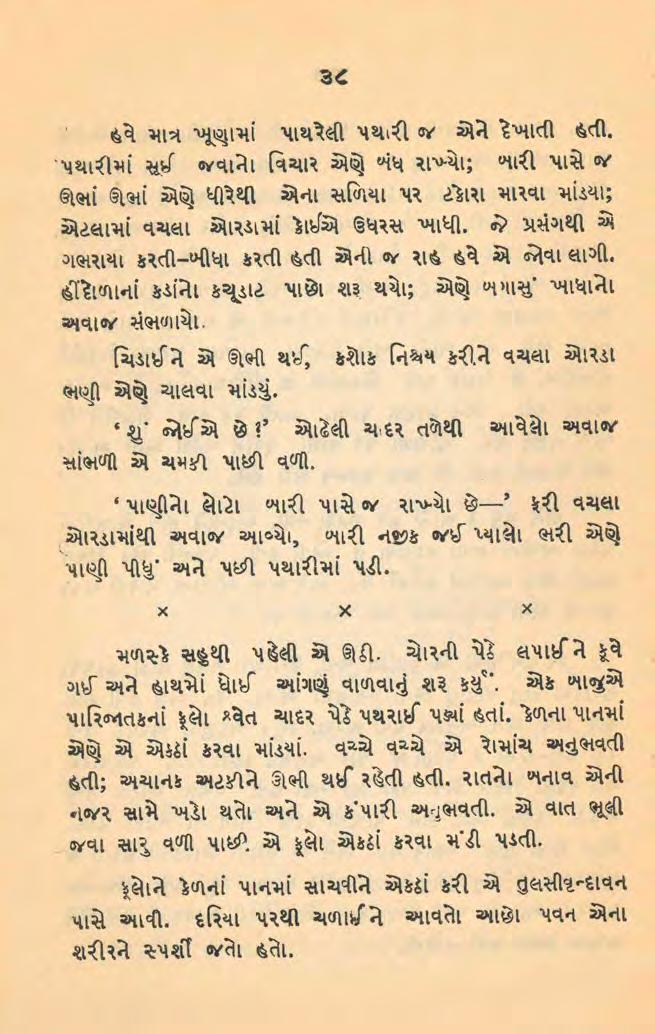 ૩૮
હવે માત્ર ખૂણામાં પાથરેલી પથારી જ એને દેખાતી હતી.
પથારીમાં સૂઈ જવાનો વિચાર એણે બંધ રાખ્યો; બારી પાસે જ
ઊભાં ઊભાં એણે ધીરેથી એના સળિયા પર ટકોરા મારવા માંડયા;
એટલામાં વચલા ઓરડામાં કોઈએ ઉધરસ ખાધી. જે પ્રસંગથી એ
ગભરાયા કરતી–બીધા કરતી હતી એની જ રાહ હવે એ જોવા લાગી.
હીંદોળાનાં કડાંનો કચૂડાટ પાછો શરૂ થયો; એણે બગાસું ખાધાનો
અવાજ સંભળાયો.
ચિડાઈને એ ઊભી થઈ, કશોક નિશ્ચય કરીને વચલા ઓરડા
ભણી એણે ચાલવા માંડયું.
‘શું જોઈએ છે?’ ઓઢેલી ચાદર તળેથી આવેલો અવાજ
સાંભળી એ ચમકી પાછી વળી.
‘પાણીનો લોટો બારી પાસે જ રાખ્યો છે—’ ફરી વચલા
ઓરડામાંથી અવાજ આવ્યો, બારી નજીક જઈ પ્યાલો ભરી એણે
પાણી પીધું અને પછી પથારીમાં પડી.
× × ×
મળસ્કે સહુથી પહેલી એ ઊઠી. ચોરની પેઠે લપાઈને કૂવે
ગઈ અને હાથમોં ધોઈ આંગણું વાળવાનું શરૂ કર્યું. એક બાજુએ
પારિજાતકનાં ફૂલો શ્વેત ચાદર પેઠે પથરાઈ પડ્યાં હતાં. કેળના પાનમાં
એણે એ એકઠાં કરવા માંડયાં. વચ્ચે વચ્ચે એ રોમાંચ અનુભવતી
હતી; અચાનક અટકીને ઊભી થઈ રહેતી હતી. રાતનો બનાવ એની
નજર સામે ખડો થતો અને એ કંપારી અનુભવતી. એ વાત ભૂલી
જવા સારુ વળી પાછી એ ફૂલો એકઠાં કરવા મંડી પડતી.
ફૂલોને કેળનાં પાનમાં સાચવીને એકઠાં કરી એ તુલસીવૃન્દાવન
પાસે આવી. દરિયા પરથી ચળાઈને આવતો આછો પવન એના
શરીરને સ્પર્શી જતો હતો.